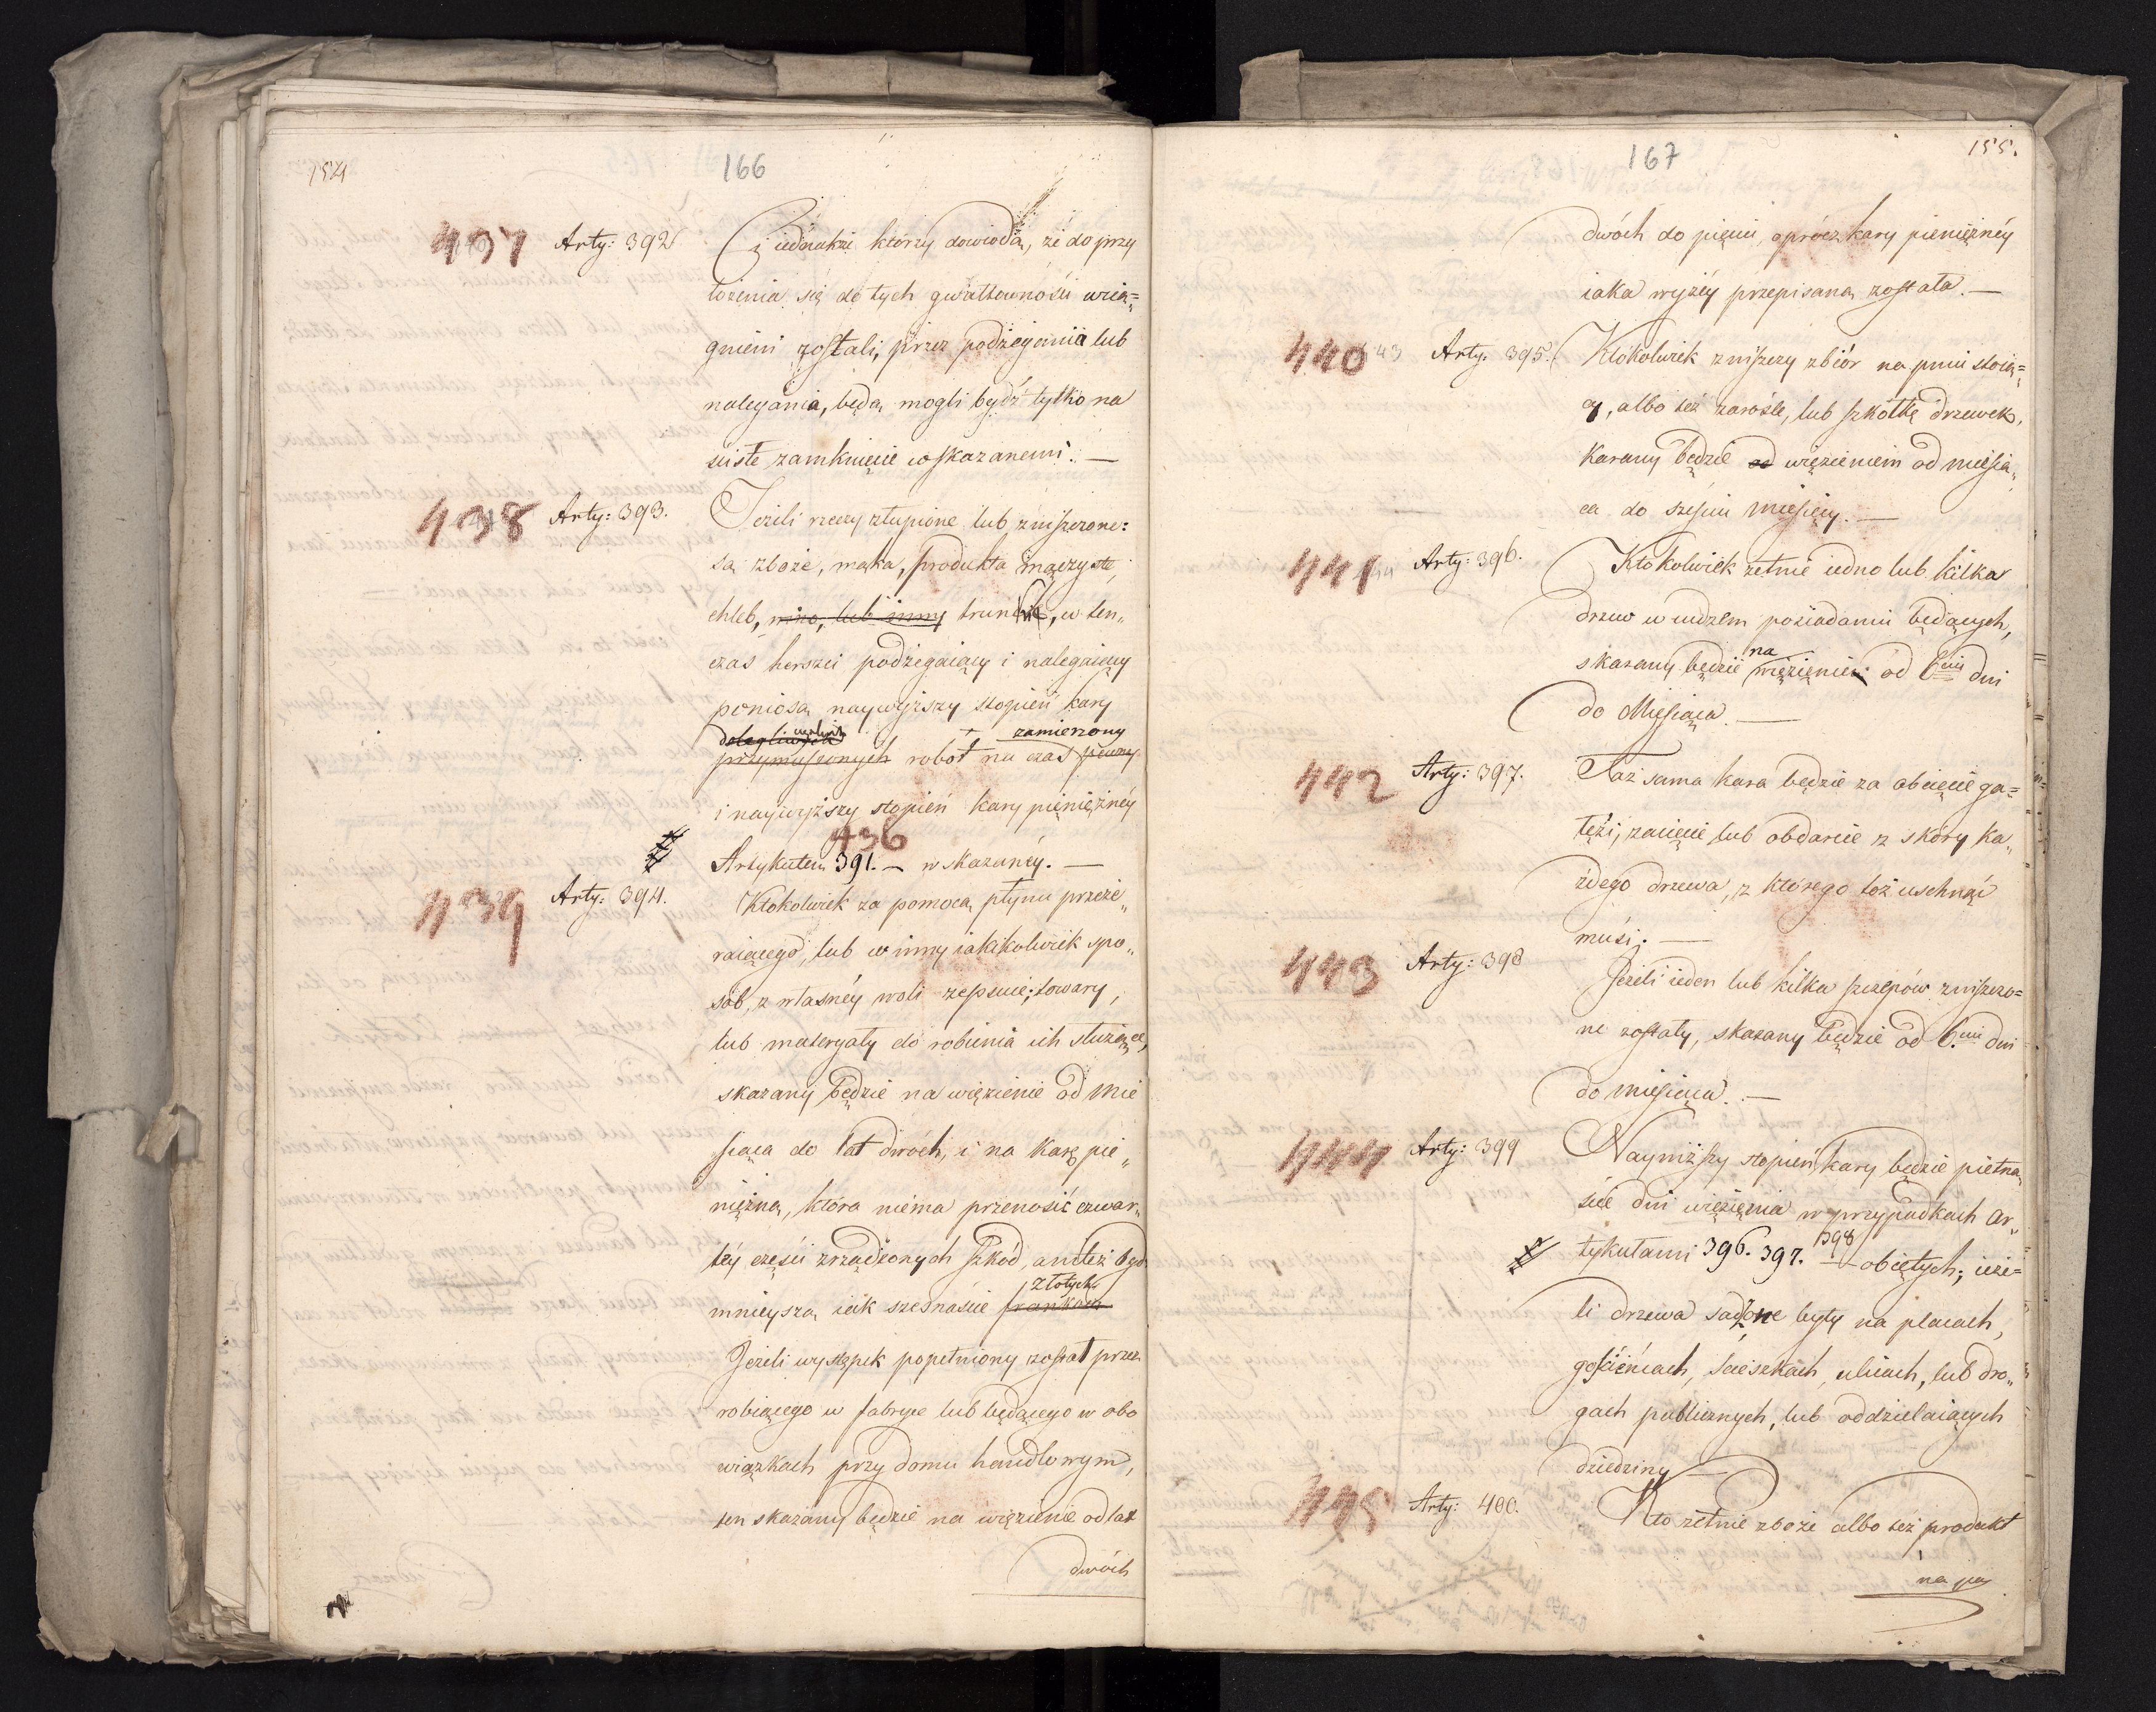 154
166
437 Arty: 392 Ci iednakże którzy dowiodą, że do przy
łożenia się do tych gwałtowności wcią=
gnieni zostali, przez podżegania lub
nalegania, będą mogli bydź tylko na
ścisłe zamknięcie wskazanemi. —
438 Arty: 393. Jeżeli rzeczy złupione lub zniszczone:
są zboże, mąka, produkta mączyste,
chleb, wino, lub inny trunki, w ten„
czas herszci podżegaiący i nalegaiący
poniosą naywyższy stopień kary
zamierzony
przymuszonych robót na czas pewny
i naywyższy stopień kary pieniężnéy
436
Artykułem 391. — wskazanéy. —
439 Arty: 394. Ktokolwiek za pomocą płynu przeże„
raiącego, lub w inny iakikolwiek spo„
sób, z własnéy woli zepsuie; towary,
lub materyały do robienia ich służące,
skazany będzie na więzienie od mie
siąca do lat dwóch, i na karę pie„
niężną, która niema przenosić czwar„
téy części zrządzonych szkód, ani też bydź
złotych
mnieyszą iak szesnaście franków
Jeżeli występek popełniony został przez
robiącego w fabryce lub będącego w obo
wiązkach przy domu handlowym,
ten skazany będzie na więzienie od lat
dwóch
167
155.
dwóch do pięciu, oprócz kary pieniężnéy
iaka wyżéy przepisaną została. —
440 43 Arty: 395. Ktokolwiek zniszczy zbiór na pniu stoią=
cy, albo też zarośle, lub szkółkę drzewek,
karany będzie od więzieniem od miesią„
ca do sześciu miesięcy. —
441 44 Arty: 396. Ktokolwiek zetnie iedno lub kilka
drzew w cudzem posiadaniu będących,
na
skazany będzie więzienie od 6ciu dni
do Miesiąca. —
442 Arty: 397. Taż sama kara będzie za obcięcie ga=
łęzi, zacięcie lub obdarcie z skóry ka„
żdego drzewa, z którego toż uschnąć
musi. —
443 Arty: 398 Jeżeli ieden lub kilka szczepów zniszczo=
ne zostały, skazany będzie od 6.ciu dni
do miesiąca. —
444 Arty: 399 Nayniższy stopień kary będzie piętna„
ście dni więzienia w przypadkach ar„
398
tykułami 396. 397. — obiętych; ieże=
li drzewa sadzone były na placach,
gościńcach, ścieszkach, ulicach, lub dro„
gach publicznych, lub oddzielaiących
dziedziny —
445 Arty: 400. Kto zetnie zboże albo też produkt
na pa